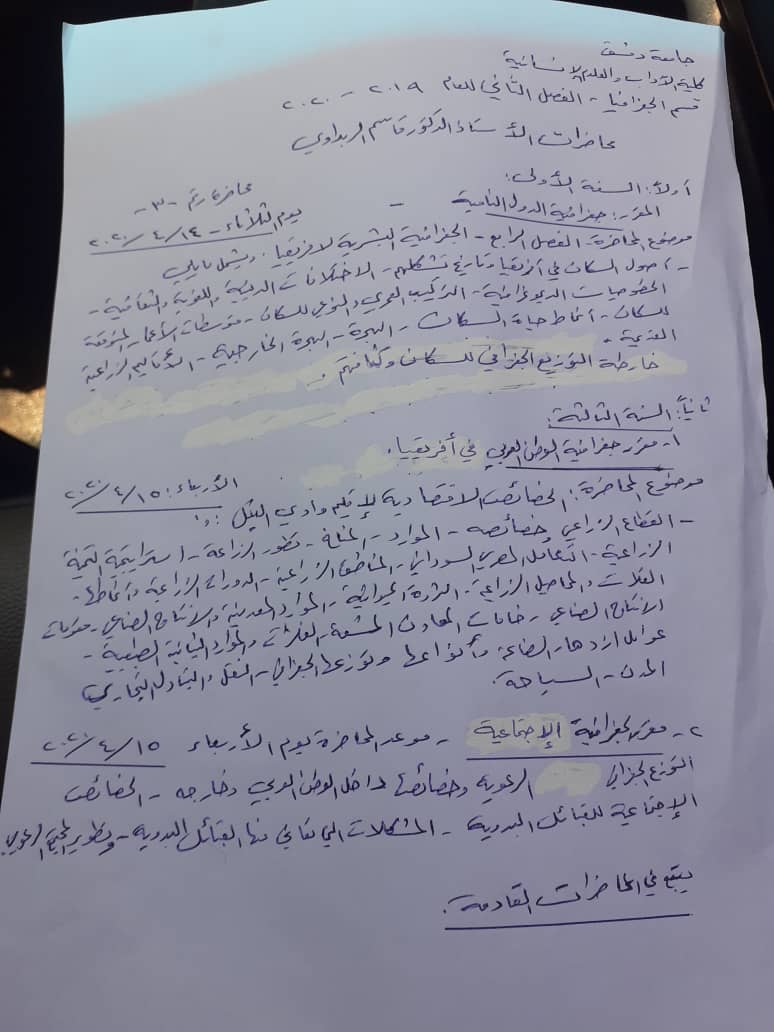 جامعة دمشق
كلية الآداب والعلوم الإنسانية
قسم الجغرافيا - الفصل الثاني للعام ٢٠١٩ - ٢٠٢٠
محاضرات الأستاذ الدكتور قاسم الربداوي
أولاً: السنة الأولى: محاضرة رقم -٣-
المقرر: جغرافية الدول النامية - يوم الثلاثاء - ٢٠٢٠/٤/١٤
موضوع المحاضرة: الفصل الرابع - الجغرافية البشرية لافريقيا. ويشمل مايلي
- أصول السكان في أفريقيا وتاريخ تشكلهم - الاختلافات الدينية واللغوية والثقافية -
الخصوصيات الديموغرافية - التركيب العمري والنوعي للسكان - متوسطات الأعمار المتوقعة
للسكان - أنماط حياة السكان - الهجرة - الهجرة الخارجية - الأقاليم الزراعية
القديمة.
خارطة التوزيع الجغرافي للسكان وكثافتهم.
ثانياً: السنة الثالثة:
١- مقرر جغرافية الوطن العربي في أفريقيا.
الأربعاء: ٢٠٢٠/٤/١٥
موضوع المحاضرة: الخصائص الاقتصادية لإقليم وادي النيل:
- القطاع الزراعي وخصائصه - الموارد - المناخ - تطور الزراعة - استراتيجية التنمية
الزراعية - التكامل المصري السوداني - المناطق الزراعية - الدورات الزراعية وأنماطها -
الغلات والمحاصيل الزراعية - الثروة الحيوانية - الموارد المعدنية والإنتاج الصناعي - مقومات
الإنتاج الصناعي - خامات المعادن المشعة - الفلزات والموارد النباتية الطبيعية -
عوامل ازدهار الصناعة وأنواعها وتوزعها الجغرافي - النقل والتبادل التجاري
المدن - السياحة.
٢- مقرر الجغرافية الإجتماعية - موعد المحاضرة يوم الأربعاء ٢٠٢٠/٤/١٥
التوزع الجغرافي الرعوية وخصائصها داخل الوطن العربي وخارجه - الخصائص
الإجتماعية للقبائل البدوية - المشكلات التي تعاني منها القبائل البدوية - وتطوير المجتمع الرعوي
يتبع في المحاضرات القادمة.